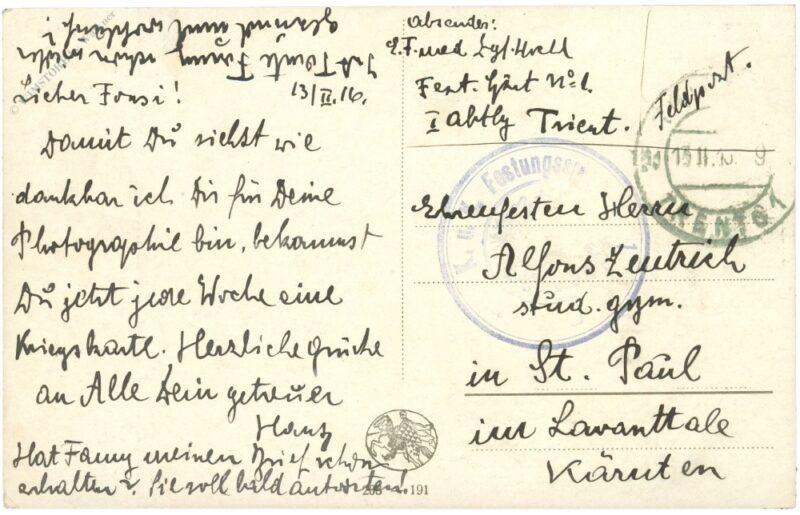 Lieber Fonsi!
13/II.16.
Damit Du siehst wie
dankbar ich Dir für Deine
Photographie bin, bekommst
Du jetzt jede Woche eine
Kriegskarte. Herzliche Grüße
an Alle Dein getreuer
Hans
Hat Fanny meinen Brief schon
erhalten? Sie soll bald antworten!
203 191
Absender:
E.F. med
Fest. Nº 1.
I Abtlg Trient.
Feldpost.
K. u. K. Festungssp
13 II. 16 9
TRENTO 1
Ehrenfesten Herrn
Alfons Zentrich
stud. gym.
in St. Paul
im Lavanttale
Kärnten